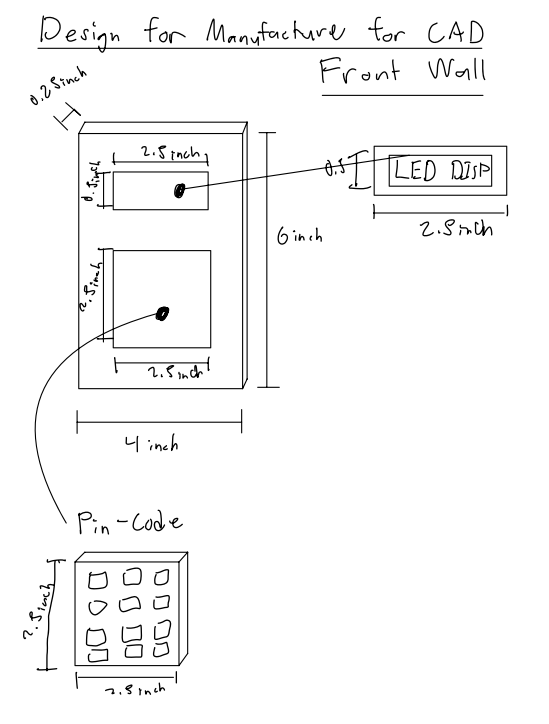 Design for Manufacture for CAD
Front Wall
0.25inch
2.5inch
0.5inch
0.5
LED DISP
2.5inch
6 inch
2.5inch
2.5inch
4 inch
Pin-Code
2.5inch
2.5inch